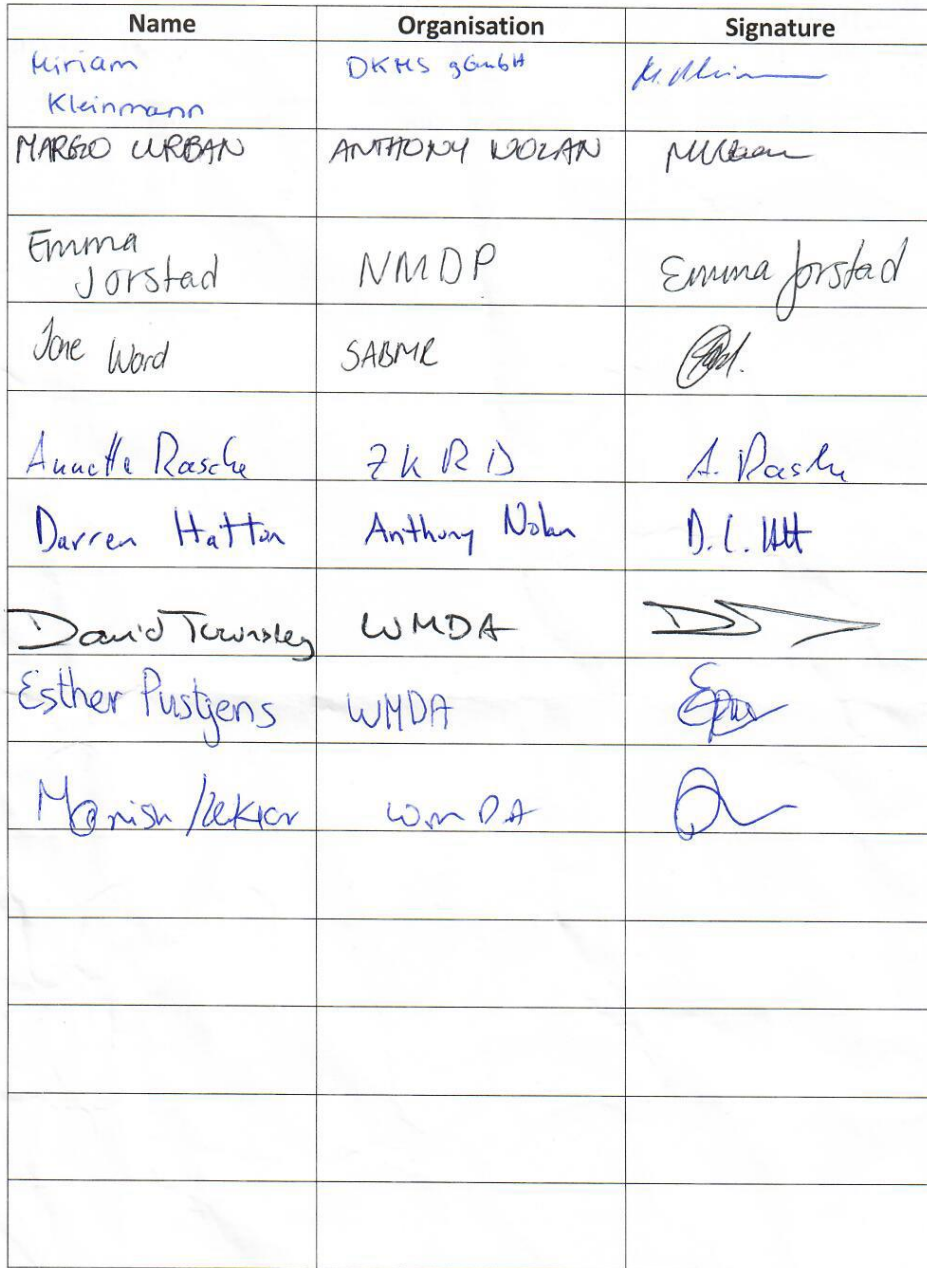 Name Organisation Signature
Miriam DKMS gGmbH
Kleinmann
MARGO URBAN ANTHONY NOLAN
Emma
Jorstad NMDP Emma Jorstad
Jane Ward SABMR
Annette Rasche ZKRD A. Rasche
Darren Hatton Anthony Nolan
David Townsley WMDA
Esther Pustjens WMDA
WMDA